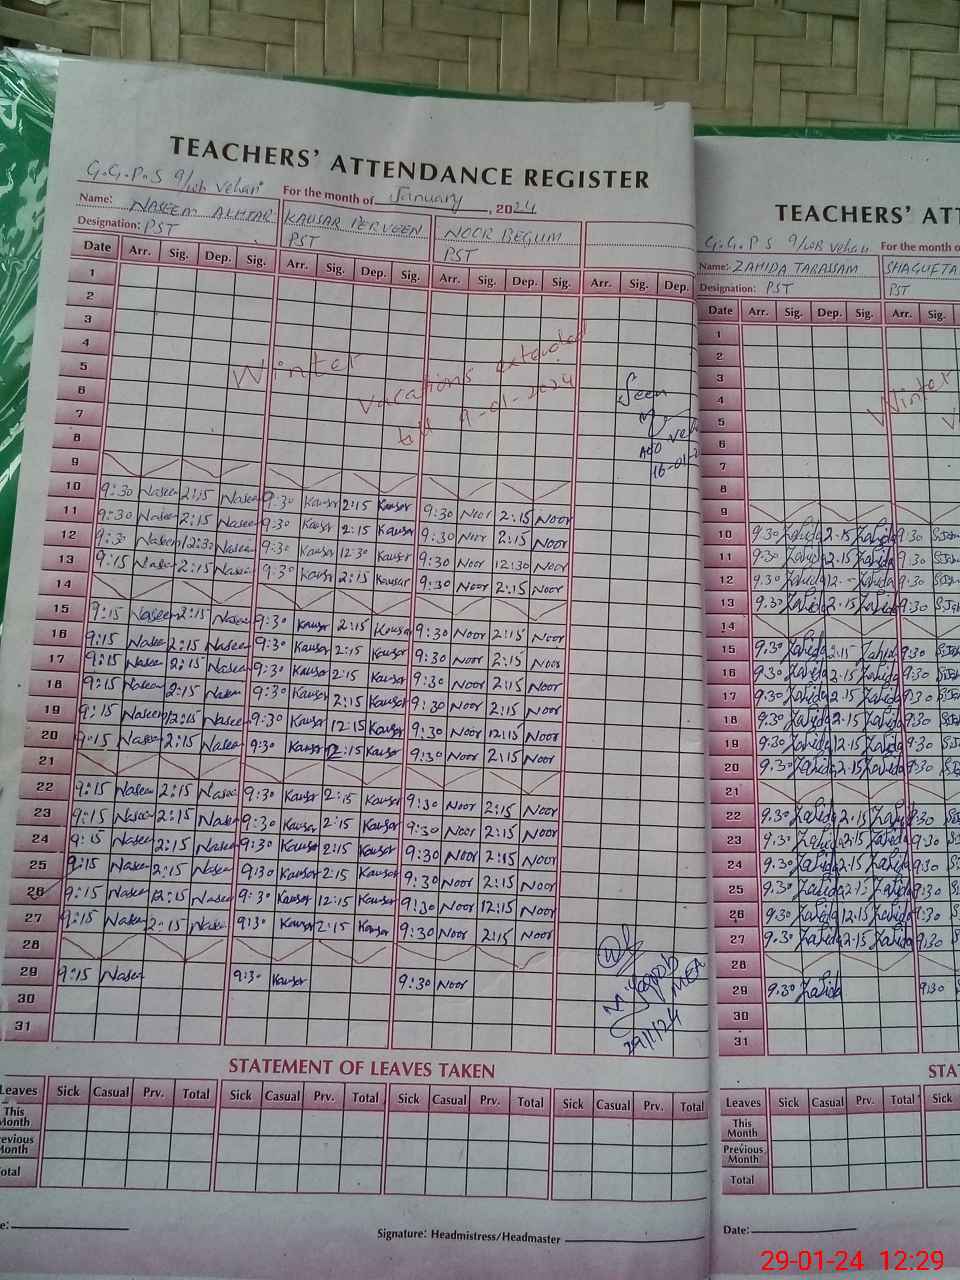 TEACHERS' ATTENDANCE REGISTER
G.G.P.S 9/WB Vehari For the month of January, 2024
Name: NASEEM AKHTAR KAUSAR PERVEEN NOOR BEGUM
Designation: PST PST PST
Date Arr. Sig. Dep. Sig. Arr. Sig. Dep. Sig. Arr. Sig. Dep. Sig. Arr. Sig. Dep.
1
2
3
4
5
6
7
8
9
Winter vacations extended
till 9-01-2024
Seen
AEO Veh
16-01-2
10 9:30 Naseem 2:15 Naseem 9:30 Kausar 2:15 Kausar 9:30 Noor 2:15 Noor
11 9:30 Naseem 2:15 Naseem 9:30 Kausar 2:15 Kausar 9:30 Noor 2:15 Noor
12 9:30 Naseem 12:30 Naseem 9:30 Kausar 12:30 Kausar 9:30 Noor 12:30 Noor
13 9:15 Naseem 2:15 Naseem 9:30 Kausar 2:15 Kausar 9:30 Noor 2:15 Noor
14
15 9:15 Naseem 2:15 Naseem 9:30 Kausar 2:15 Kausar 9:30 Noor 2:15 Noor
16 9:15 Naseem 2:15 Naseem 9:30 Kausar 2:15 Kausar 9:30 Noor 2:15 Noor
17 9:15 Naseem 2:15 Naseem 9:30 Kausar 2:15 Kausar 9:30 Noor 2:15 Noor
18 9:15 Naseem 2:15 Naseem 9:30 Kausar 2:15 Kausar 9:30 Noor 2:15 Noor
19 9:15 Naseem 12:15 Naseem 9:30 Kausar 12:15 Kausar 9:30 Noor 12:15 Noor
20 9:15 Naseem 2:15 Naseem 9:30 Kausar 2:15 Kausar 9:30 Noor 2:15 Noor
21
22 9:15 Naseem 2:15 Naseem 9:30 Kausar 2:15 Kausar 9:30 Noor 2:15 Noor
23 9:15 Naseem 2:15 Naseem 9:30 Kausar 2:15 Kausar 9:30 Noor 2:15 Noor
24 9:15 Naseem 2:15 Naseem 9:30 Kausar 2:15 Kausar 9:30 Noor 2:15 Noor
25 9:15 Naseem 2:15 Naseem 9:30 Kausar 2:15 Kausar 9:30 Noor 2:15 Noor
26 9:15 Naseem 12:15 Naseem 9:30 Kausar 12:15 Kausar 9:30 Noor 12:15 Noor
27 9:15 Naseem 2:15 Naseem 9:30 Kausar 2:15 Kausar 9:30 Noor 2:15 Noor
28
29 9:15 Naseem 9:30 Kausar 9:30 Noor
30
31
M. Yaqoob
MEA
29/1/24
STATEMENT OF LEAVES TAKEN
Leaves Sick Casual Prv. Total Sick Casual Prv. Total Sick Casual Prv. Total Sick Casual Prv. Total
This Month
revious Month
otal
e: Signature: Headmistress/Headmaster
TEACHERS' ATT
G.G.P.S 9/WB Vehari For the month o
Name: ZAHIDA TABASSAM SHAGUFTA
Designation: PST PST
Date Arr. Sig. Dep. Sig. Arr. Sig.
1
2
3
4
5
6
7
8
9
Winter
V
10 9:30 Zahida 2:15 Zahida 9:30
11 9:30 Zahida 2:15 Zahida 9:30
12 9:30 Zahida 12 Zahida 9:30
13 9:30 Zahida 2:15 Zahida 9:30
14
15 9:30 Zahida 2:15 Zahida 9:30
16 9:30 Zahida 2:15 Zahida 9:30
17 9:30 Zahida 2:15 Zahida 9:30
18 9:30 Zahida 2:15 Zahida 9:30
19 9:30 Zahida 12:15 Zahida 9:30
20 9:30 Zahida 2:15 Zahida 9:30
21
22 9:30 Zahida 2:15 Zahida 9:30
23 9:30 Zahida 2:15 Zahida 9:30
24 9:30 Zahida 2:15 Zahida 9:30
25 9:30 Zahida Zahida 9:30
26 9:30 Zahida 12:15 Zahida 9:30
27 9:30 Zahida 2:15 Zahida 9:30
28
29 9:30 Zahida 9:30
30
31
STA
Leaves Sick Casual Prv. Total Sick
This Month
Previous Month
Total
Date:
29-01-24 12:29